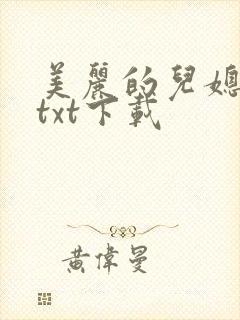 美麗的兒媳
txt下載
黃偉曼